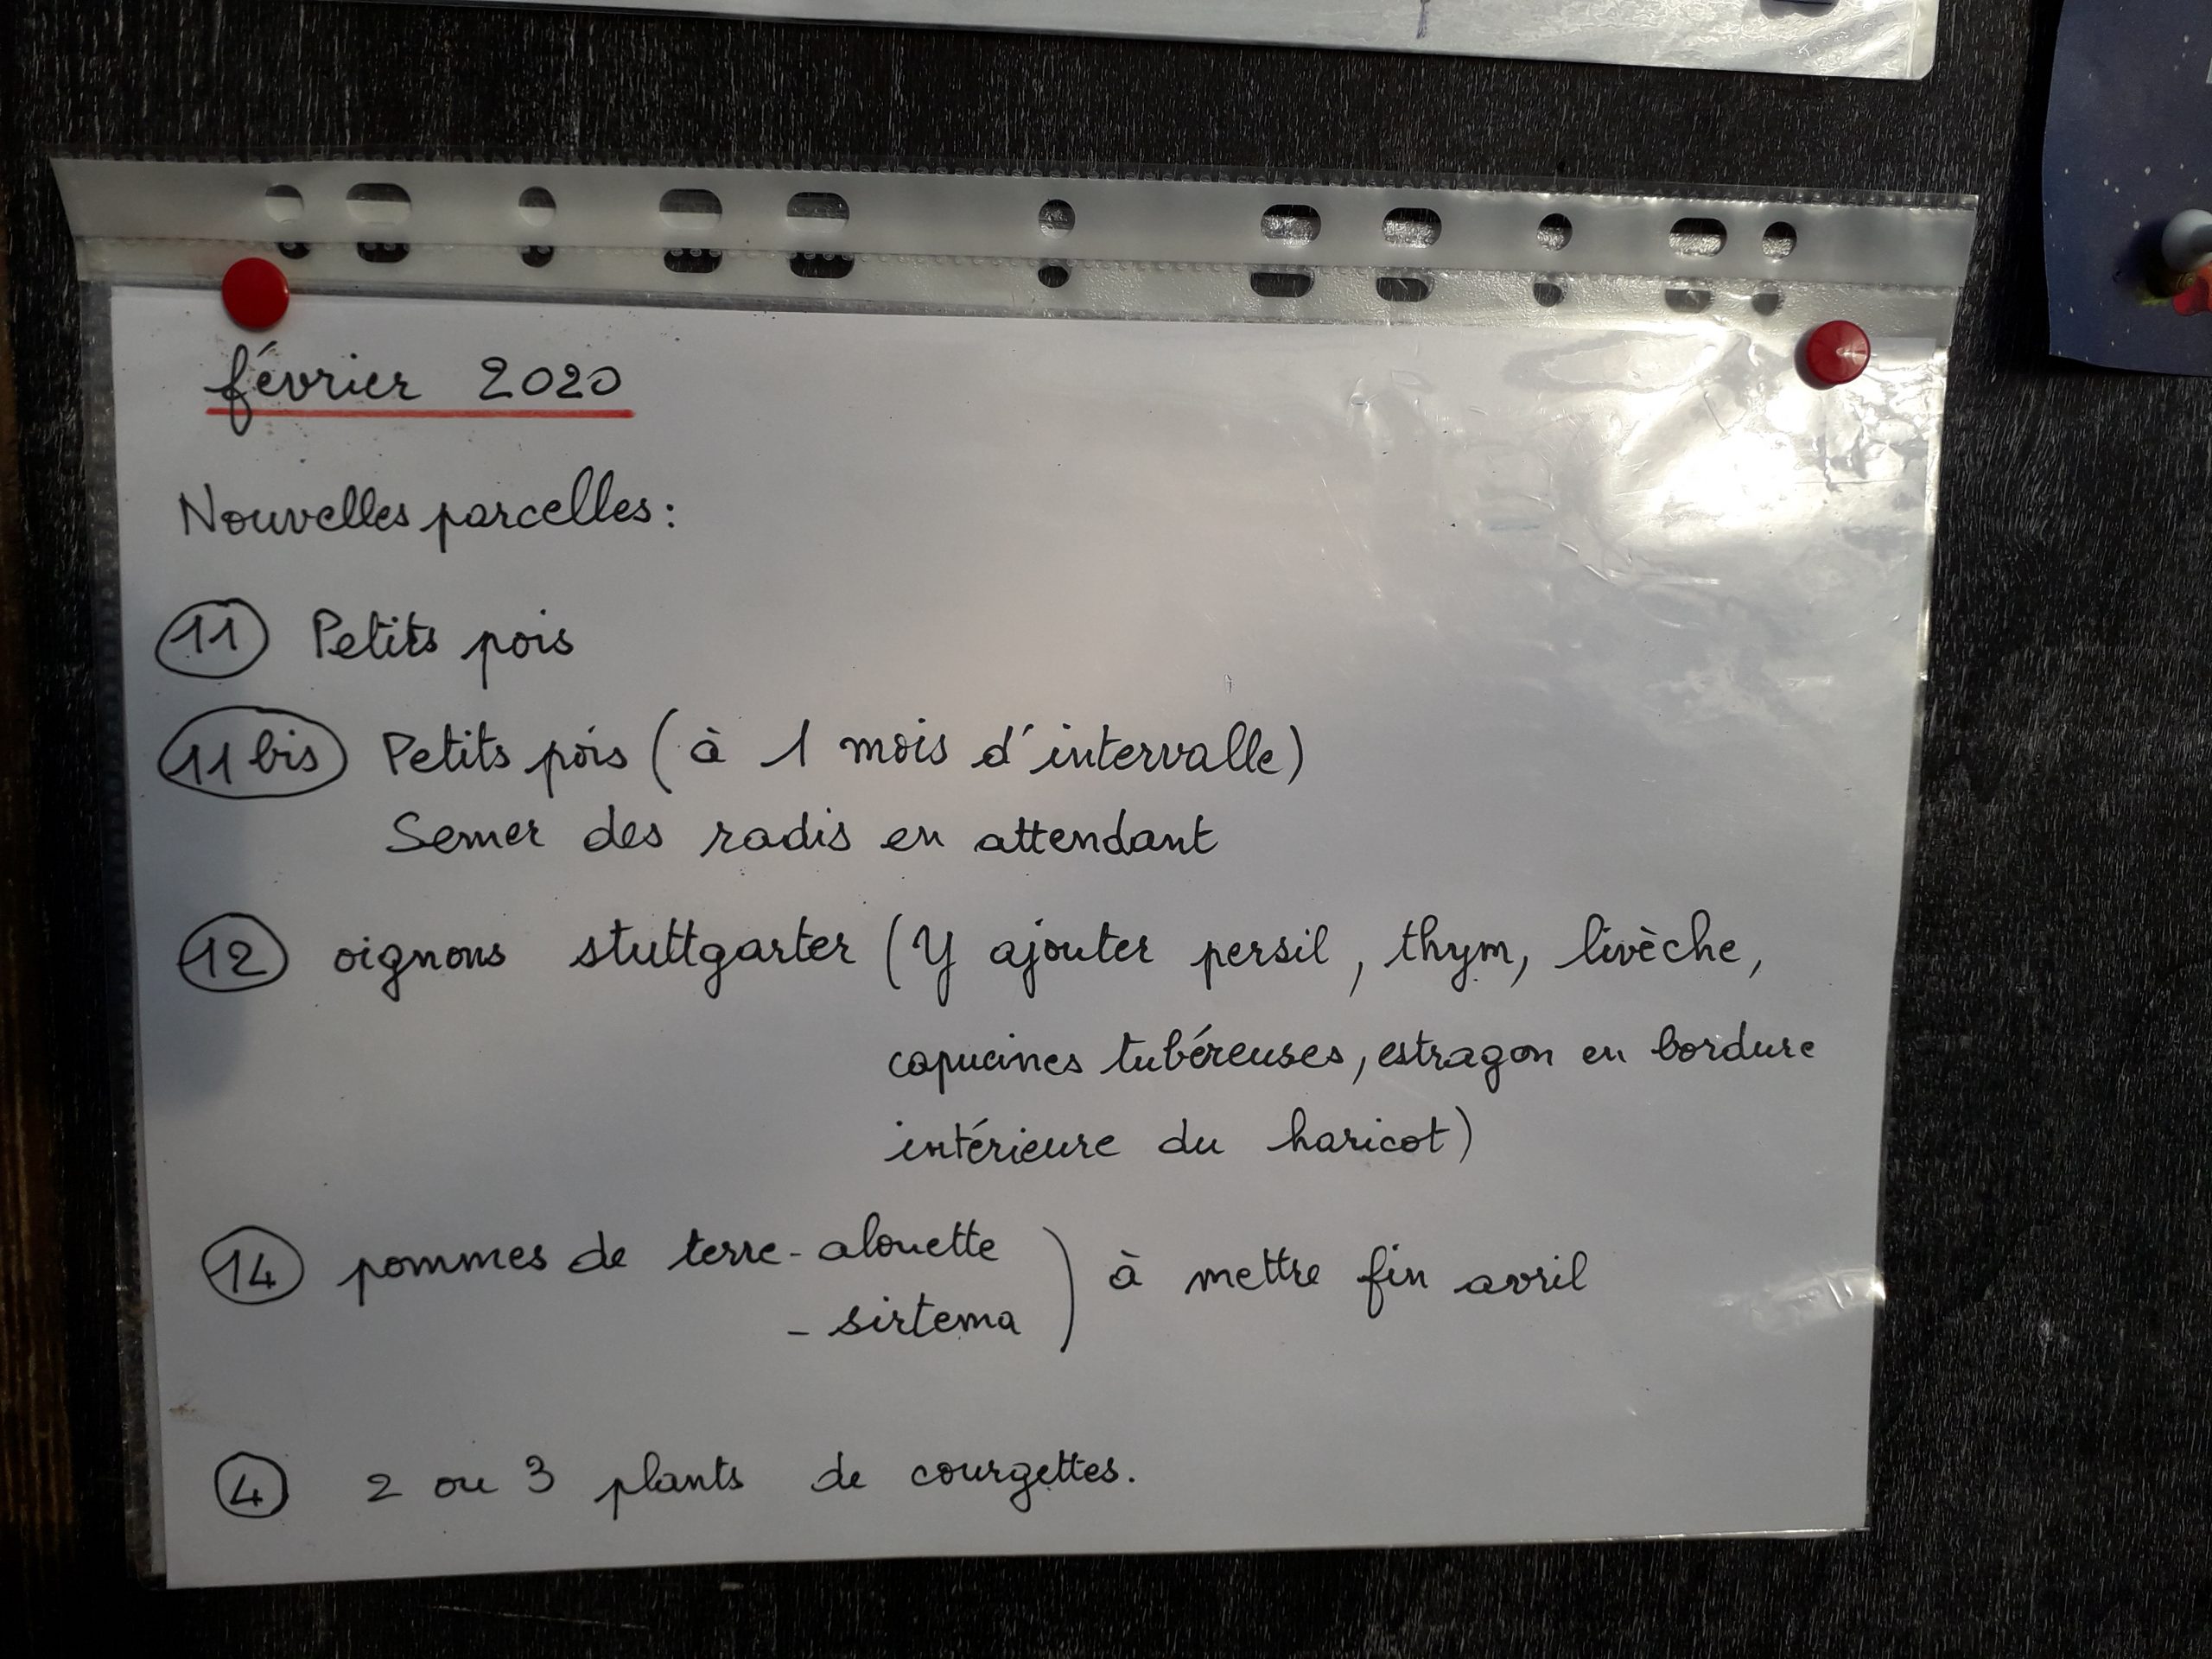 février 2020
Nouvelles parcelles:
11 Petits pois
11 bis Petits pois (à 1 mois d'intervalle)
Semer des radis en attendant
12 oignons stuttgarter (Y ajouter persil, thym, livèche,
capucines tubéreuses, estragon en bordure
intérieure du haricot)
14 pommes de terre - alouette ) à mettre fin avril
- sirtema
4 2 ou 3 plants de courgettes.